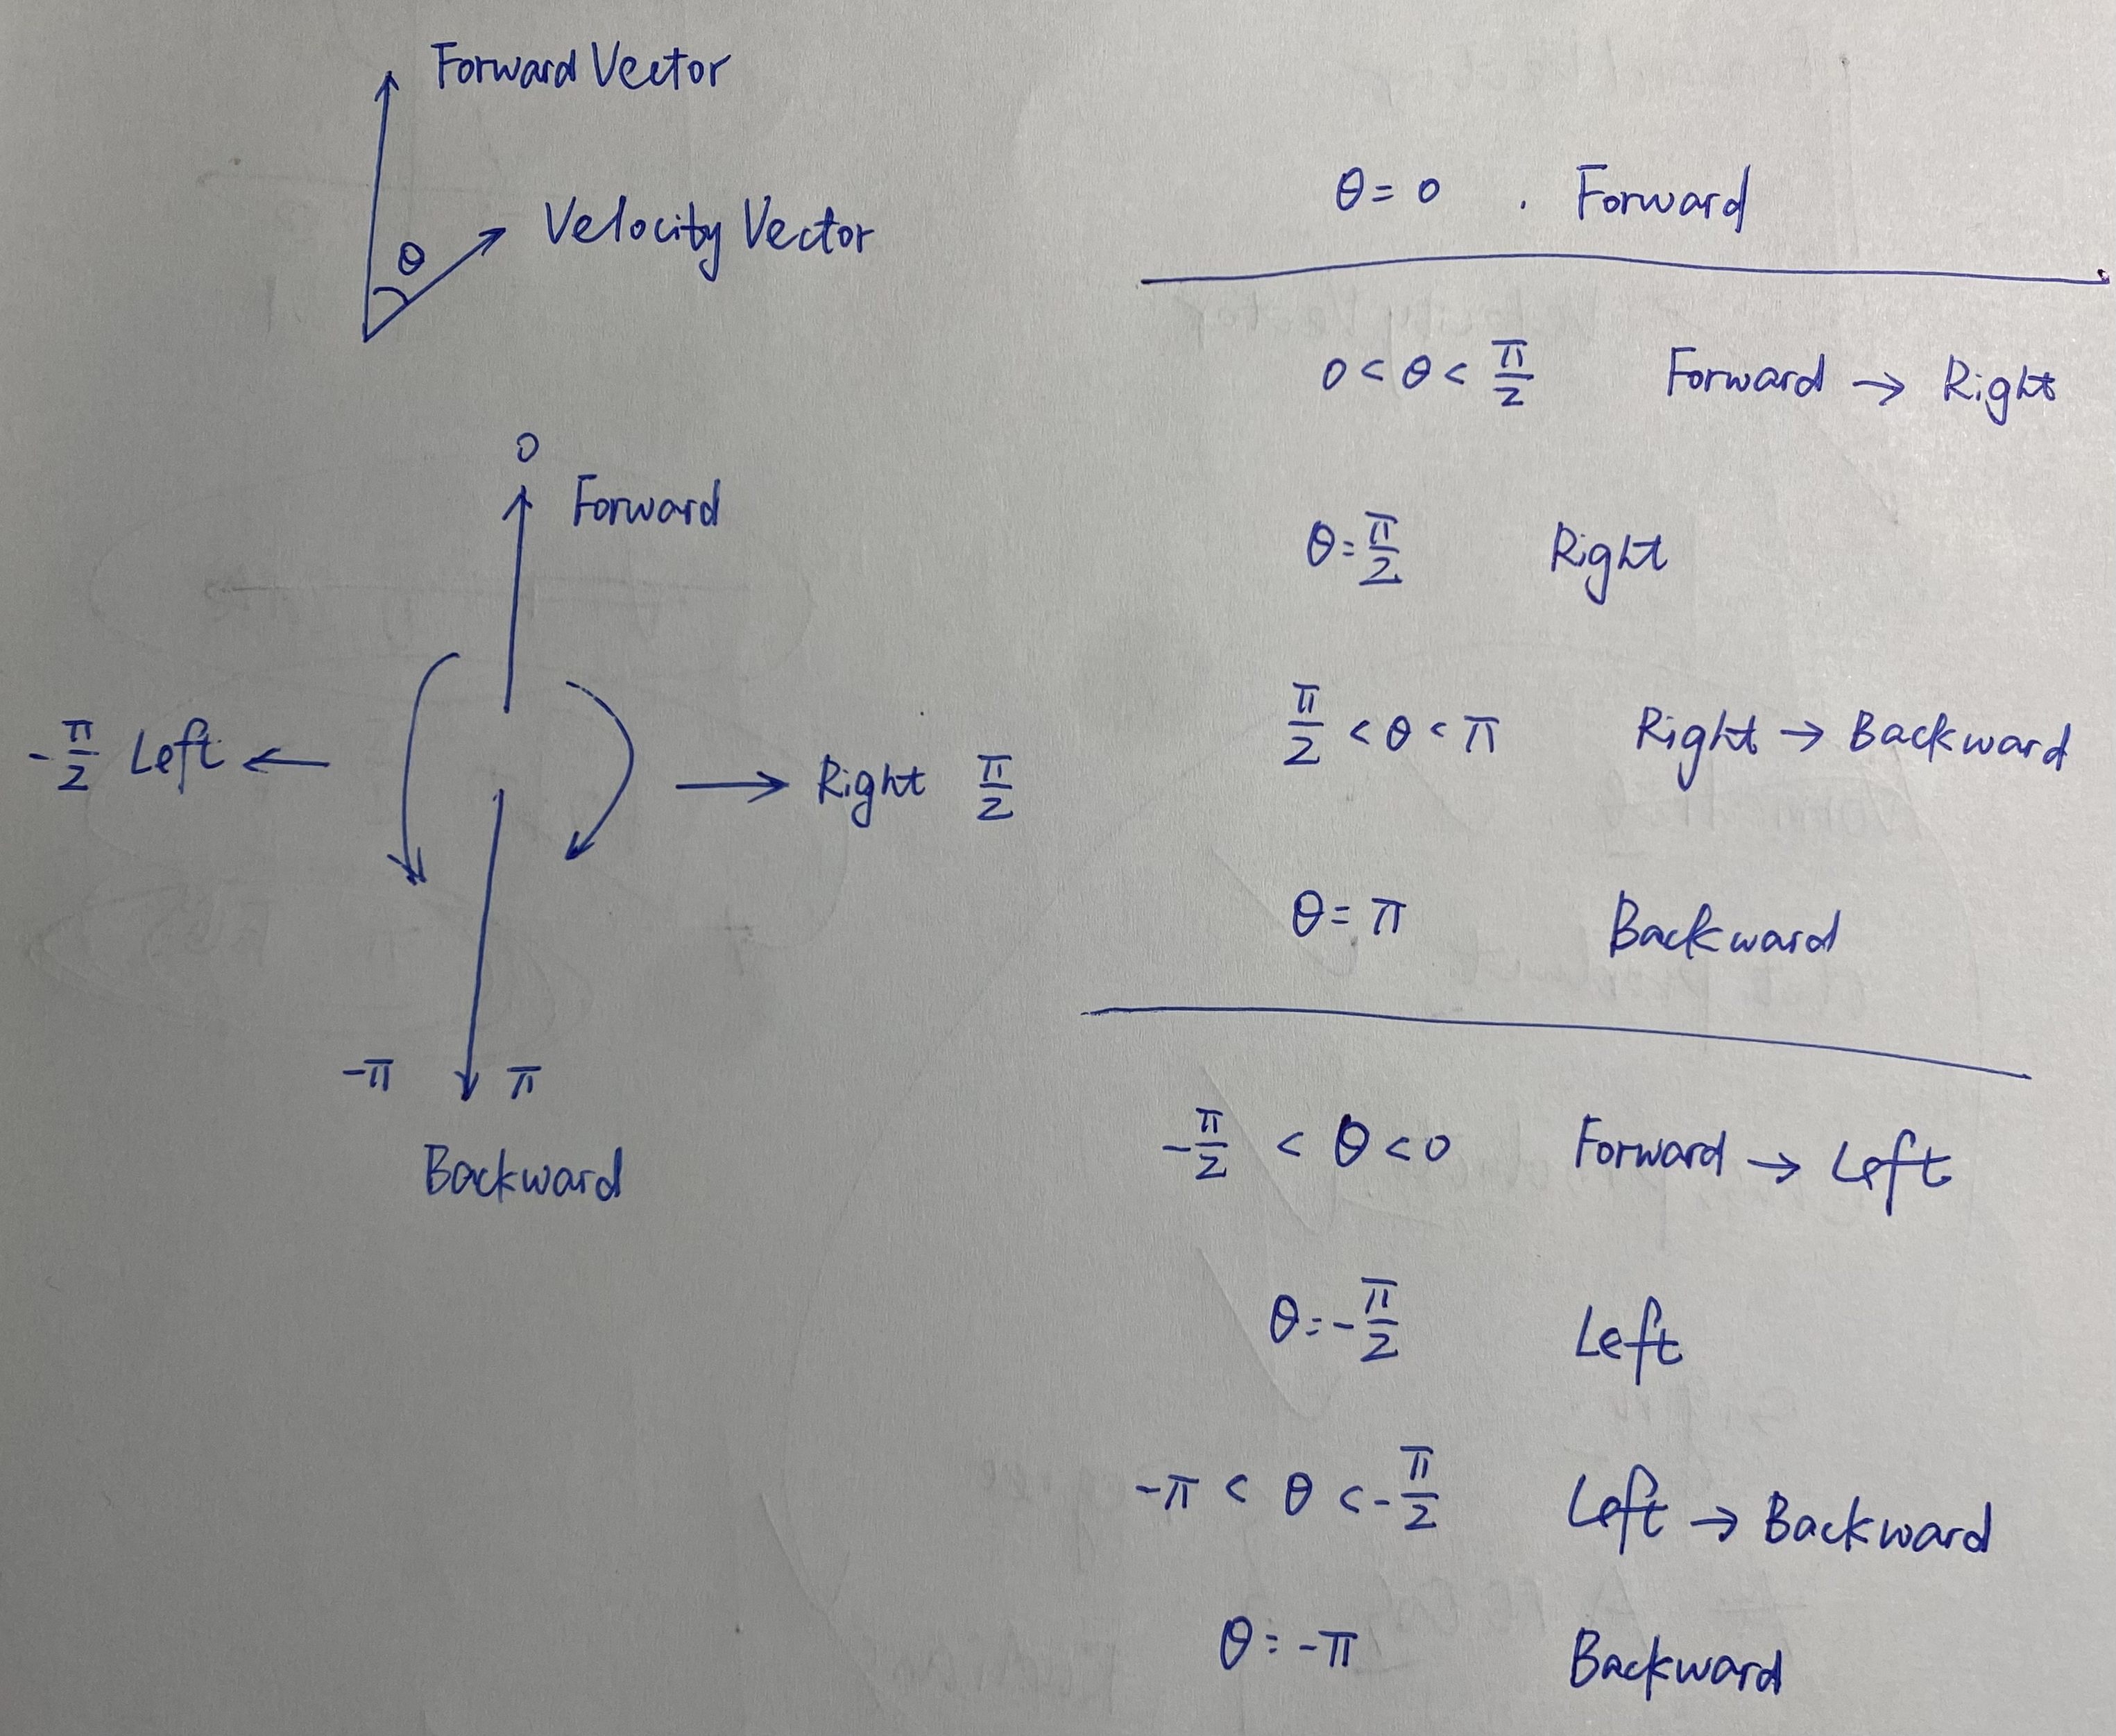 Forward Vector
θ
Velocity Vector
0
Forward
-π/2 Left ←
→ Right π/2
-π π
Backward
θ = 0 . Forward
0 < θ < π/2 Forward → Right
θ = π/2 Right
π/2 < θ < π Right → Backward
θ = π Backward
-π/2 < θ < 0 Forward → Left
θ = -π/2 Left
-π < θ < -π/2 Left → Backward
θ = -π Backward